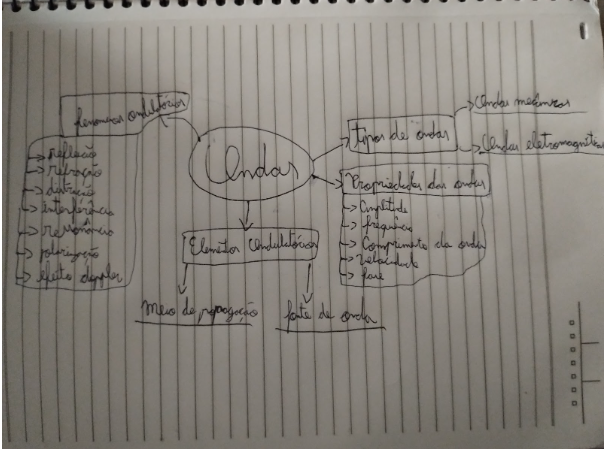 Fenomenos ondulatórios
-> reflexão
-> refração
-> difração
-> interferência
-> ressonância
-> polarização
-> efeito doppler
Ondas
tipos de ondas
Ondas mecânicas
Ondas eletromagnéticas
Propriedades das ondas
-> Amplitude
-> frequência
-> Comprimento da onda
-> velocidade
-> fase
Elementos Ondulatórios
meio de propagação
fonte de onda